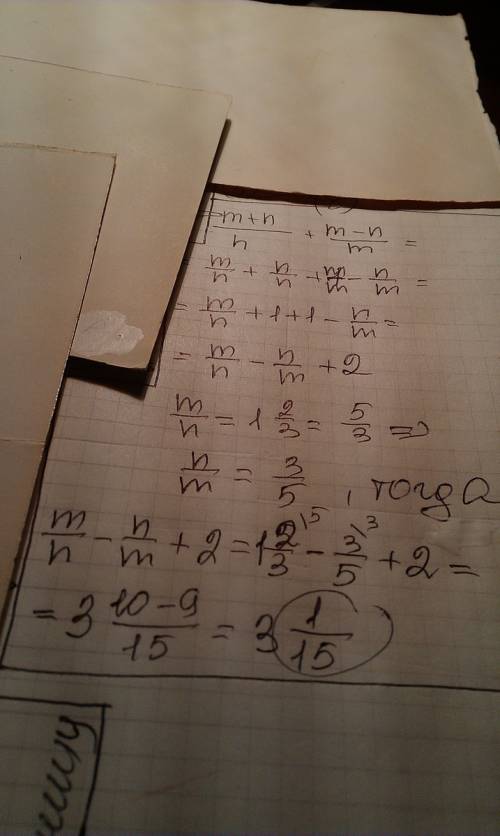 = (m+n)/n + (m-n)/m =
= m/n + n/n + m/m - n/m =
= m/n + 1 + 1 - n/m =
= m/n - n/m + 2
m/n = 1 2/3 = 5/3 ⇒
n/m = 3/5 , тогда
m/n - n/m + 2 = 1 2/3 \5 - 3/5 \3 + 2 =
= 3 (10-9)/15 = 3 1/15